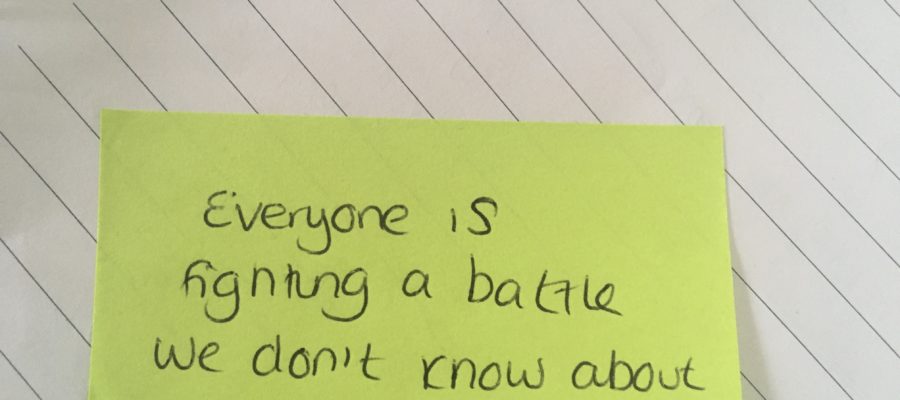 Everyone is
fighting a battle
we don't know about